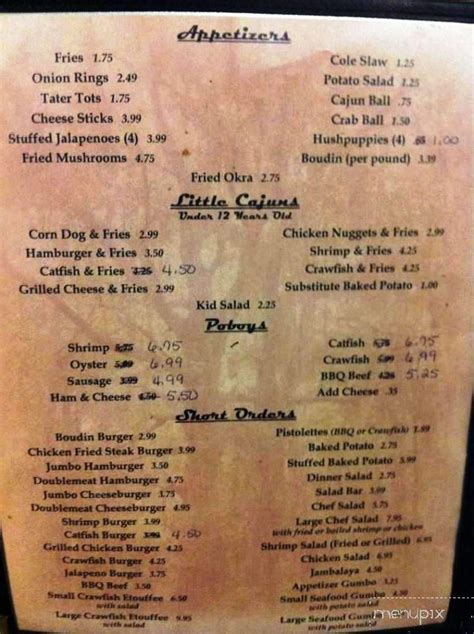 Appetizers
Fries 1.75
Onion Rings 2.49
Tater Tots 1.75
Cheese Sticks 3.99
Stuffed Jalapenoes (4) 3.99
Fried Mushrooms 4.75
Cole Slaw 1.25
Potato Salad 1.25
Cajun Ball .75
Crab Ball 1.50
Hushpuppies (4) 1.00
Boudin (per pound) 3.39
Fried Okra 2.75
Little Cajuns
Under 12 Years Old
Corn Dog & Fries 2.99
Hamburger & Fries 3.50
Catfish & Fries 4.50
Grilled Cheese & Fries 2.99
Chicken Nuggets & Fries 2.99
Shrimp & Fries 4.25
Crawfish & Fries 4.25
Substitute Baked Potato 1.00
Kid Salad 2.25
Poboys
Shrimp 5.75 6.75
Oyster 6.99
Sausage 3.99 4.99
Ham & Cheese 5.50
Catfish 6.75
Crawfish 6.99
BBQ Beef 5.25
Add Cheese .35
Short Orders
Boudin Burger 2.99
Chicken Fried Steak Burger 3.99
Jumbo Hamburger 3.50
Doublemeat Hamburger 4.75
Jumbo Cheeseburger 3.75
Doublemeat Cheeseburger 4.95
Shrimp Burger 3.99
Catfish Burger 4.50
Grilled Chicken Burger 4.25
Crawfish Burger 4.25
Jalapeno Burger 3.75
BBQ Beef 3.50
Small Crawfish Etouffee 6.75
with salad
Large Crawfish Etouffee 8.95
with salad
Pistolettes (BBQ or Crawfish) 1.89
Baked Potato 2.75
Stuffed Baked Potato 3.75
Dinner Salad 2.75
Salad Bar 3.99
Chef Salad 5.75
Large Chef Salad 7.95
with fried or boiled shrimp or chicken
Shrimp Salad (Fried or Grilled) 6.95
Chicken Salad 6.95
Jambalaya 4.25
Appetizer Gumbo
Small Seafood Gumbo
with potato salad
Large Seafood Gumbo
with potato salad
menupix